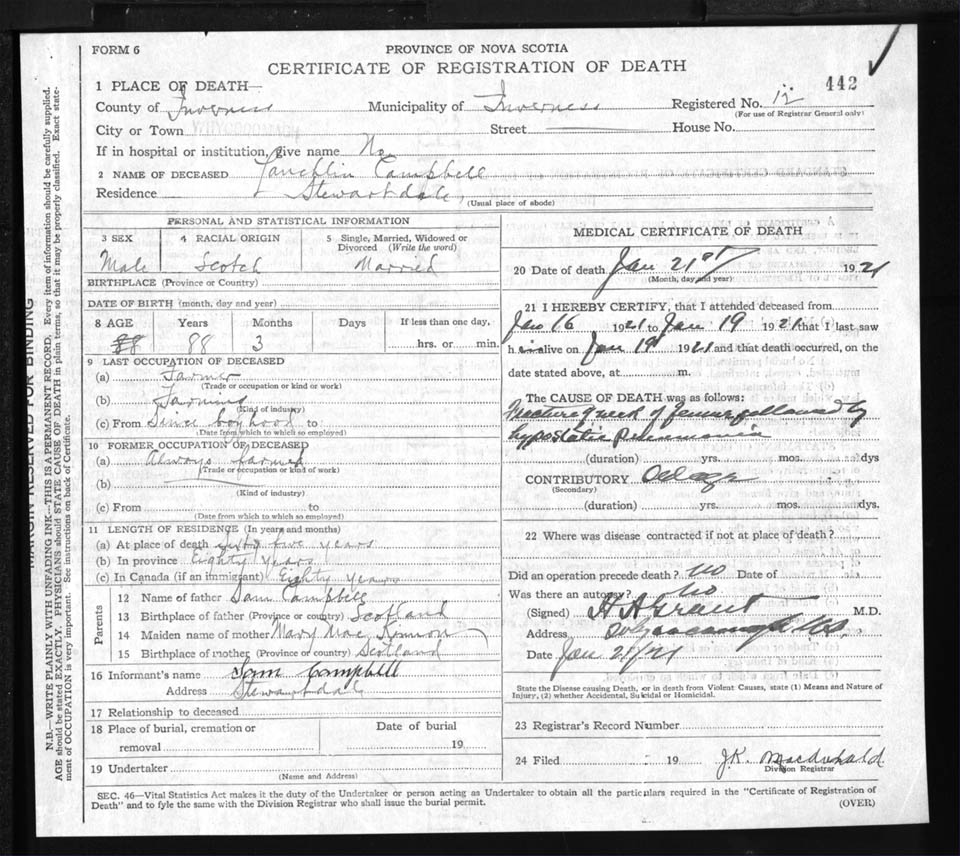 FORM 6
PROVINCE OF NOVA SCOTIA
CERTIFICATE OF REGISTRATION OF DEATH
442
1 PLACE OF DEATH
County of Inverness Municipality of Inverness Registered No. 12
(For use of Registrar General only)
City or Town Street House No.
If in hospital or institution, give name No
2 NAME OF DECEASED Lauchlin Campbell
Residence Stewartdale,
(Usual place of abode)
PERSONAL AND STATISTICAL INFORMATION
3 SEX 4 RACIAL ORIGIN 5 Single, Married, Widowed or Divorced (Write the word)
Male Scotch Married
BIRTHPLACE (Province or Country)
DATE OF BIRTH (month, day and year)
8 AGE Years Months Days If less than one day,
88 88 3 hrs. or min.
9 LAST OCCUPATION OF DECEASED
(a) Farmer
(Trade or occupation or kind or work)
(b) Farming
(Kind of industry)
(c) From Since boyhood to
(Date from which to which so employed)
10 FORMER OCCUPATION OF DECEASED
(a) Always farmed
(Trade or occupation or kind of work)
(b)
(Kind of industry)
(c) From to
(Date from which to which so employed)
11 LENGTH OF RESIDENCE (In years and months)
(a) At place of death five years
(b) In province Eighty years
(c) In Canada (if an immigrant) Eighty years
Parents
12 Name of father Sam Campbell
13 Birthplace of father (Province or country) Scotland
14 Maiden name of mother Mary Mac Kinnon
15 Birthplace of mother (Province or country) Scotland
16 Informant's name Sam Campbell
Address Stewartdale
17 Relationship to deceased
18 Place of burial, cremation or removal Date of burial 19
19 Undertaker
(Name and Address)
MEDICAL CERTIFICATE OF DEATH
20 Date of death Jan 21st 1921
(Month, day and year)
21 I HEREBY CERTIFY, that I attended deceased from
Jan 16 1921 to Jan 19 1921 that I last saw
him alive on Jan 19 1921 and that death occurred, on the
date stated above, at m.
The CAUSE OF DEATH was as follows:
Fracture neck of femur followed by
hypostatic Pneumonia
(duration) yrs. mos. dys
CONTRIBUTORY Old age
(Secondary)
(duration) yrs. mos. dys.
22 Where was disease contracted if not at place of death?
Did an operation precede death? No Date of
Was there an autopsy? No
(Signed) H A Grant M.D.
Address N.S.
Date Jan 21/21
State the Disease causing Death, or in death from Violent Causes, state (1) Means and Nature of
Injury, (2) whether Accidental, Suicidal or Homicidal.
23 Registrar's Record Number
24 Filed 19 J.K. MacDonald
Division Registrar
SEC. 46—Vital Statistics Act makes it the duty of the Undertaker or person acting as Undertaker to obtain all the particulars required in the "Certificate of Registration of
Death" and to fyle the same with the Division Registrar who shall issue the burial permit.
(OVER)
MARGIN RESERVED FOR BINDING
N.B.—WRITE PLAINLY WITH UNFADING INK—THIS IS A PERMANENT RECORD. Every item of information should be carefully supplied.
AGE should be stated EXACTLY. PHYSICIANS should STATE CAUSE OF DEATH in plain terms, so that it may be properly classified. Exact statement of OCCUPATION is very important. See instructions on back of Certificate.